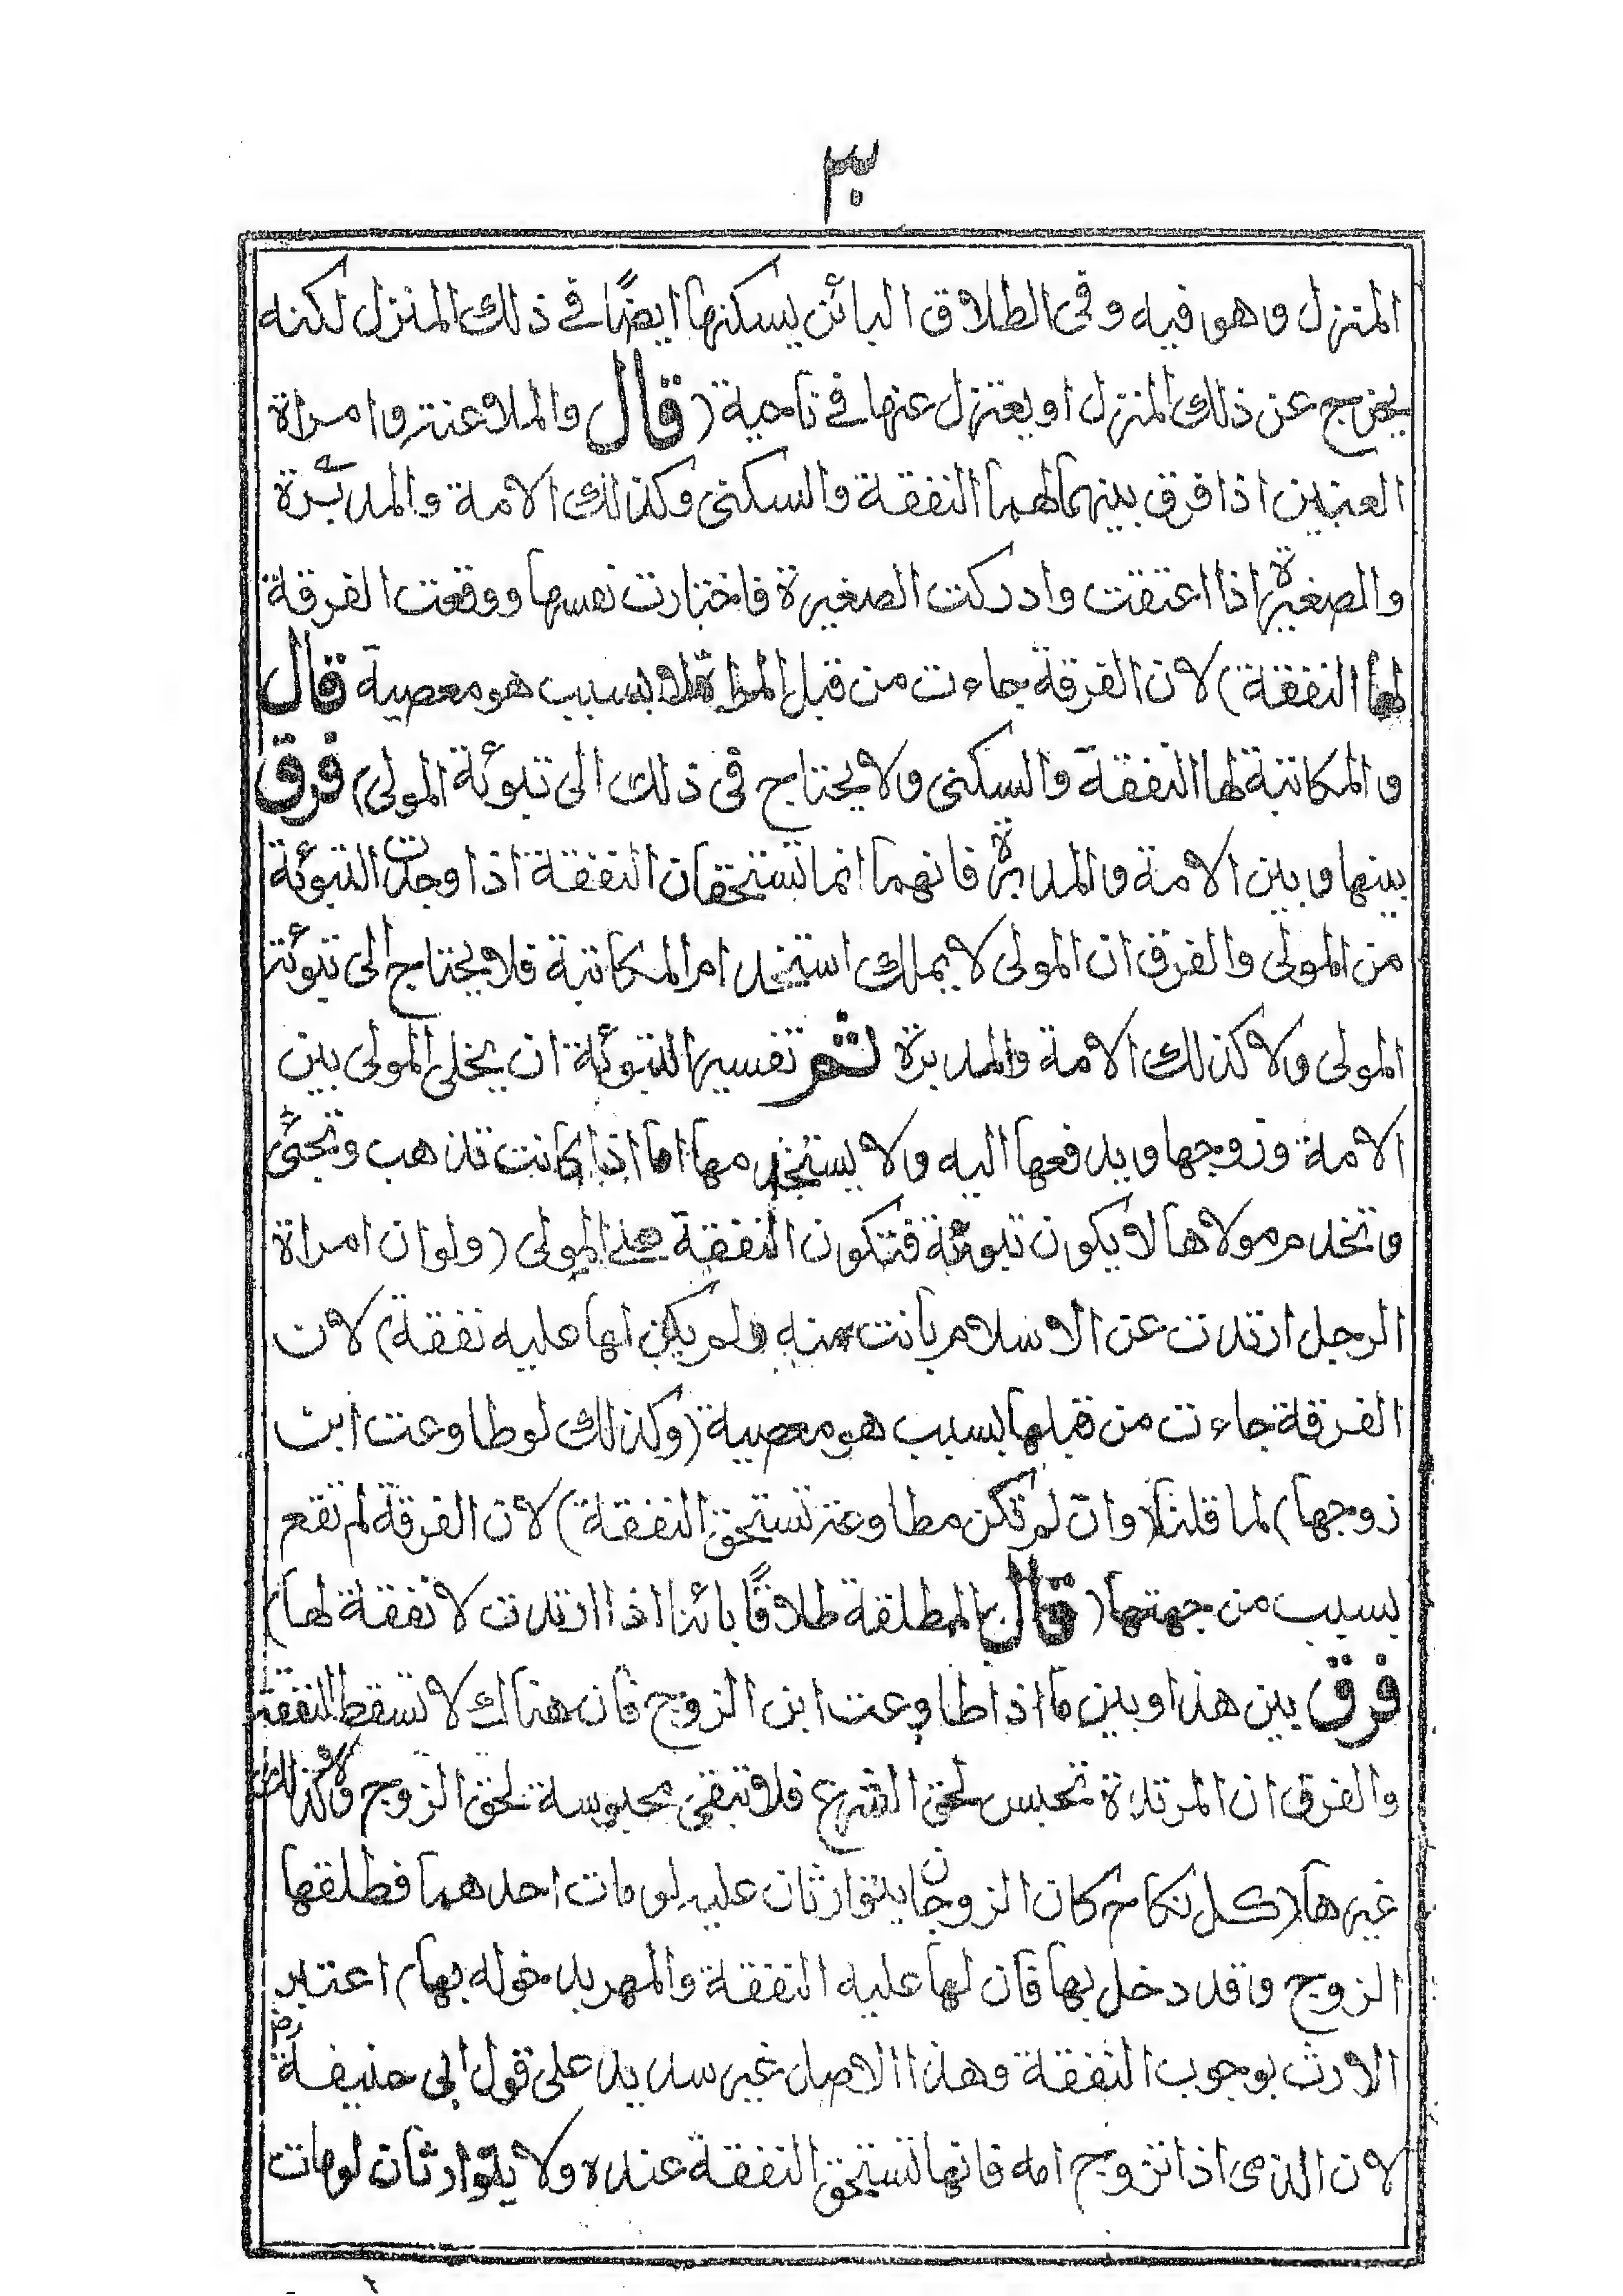 ٣٠
المنزل وهو فيه وفى الطلاق البائن يسكنها ايضًا فى ذلك المنزل لكنه
يخرج عن ذلك المنزل او يعتزل عنها فى ناحية (قال والملاعنة وامراة
العنين اذا فرق بينهما لهما النفقة والسكنى وكذلك الامة والمدبّرة
والصغيرة اذا اعتقت وادركت الصغيرة فاختارت نفسها ووقعت الفرقة
لها النفقة) لان الفرقة جاءت من قبل المرأة لا بسبب هو معصية قال
والمكاتبة لها النفقة والسكنى ولا يحتاج فى ذلك الى تبوئة المولى) فرق
بينها وبين الامة والمدبرة فانهما انما تستحقان النفقة اذا وجدت التبوئة
من المولى والفرق ان المولى لا يملك استخدام المكاتبة فلا يحتاج الى تبوئة
المولى ولا كذلك الامة والمدبرة ثم تفسير التبوئة ان يخلى المولى بين
الامة وزوجها ويدفعها اليه ولا يستخدمها اما اذا كانت تذهب وتجئ
وتخدم مولاها لا يكون تبوئة فتكون النفقة على المولى (ولو ان امراة
الرجل ارتدت عن الاسلام بانت منه ولم يكن لها عليه نفقة) لان
الفرقة جاءت من قبلها بسبب هو معصية (وكذلك لو طاوعت ابن
زوجها) لما قلنا (وان لم تكن مطاوعة تستحق النفقة) لان الفرقة لم تقع
بسبب من جهتها (قال المطلقة طلاقًا بائنا اذا ارتدت لا نفقة لها)
فرق بين هذا وبين ما اذا طاوعت ابن الزوج فان هناك لا تسقط النفقة
والفرق ان المرتدة تحبس لحق الشرع فلا تبقى محبوسة لحق الزوج ولا كذلك
غيرها (كل نكاح كان الزوجان يتوارثان عليه لو مات احدهما فطلقها
الزوج وقد دخل بها فان لها عليه النفقة والمهر بدخوله بها) اعتبر
الارث بوجوب النفقة وهذا الاصل غير سديد على قول ابى حنيفة رض
لان الذمى اذا تزوج امه فانها تستحق النفقة عنده ولا يتوارثان لو مات